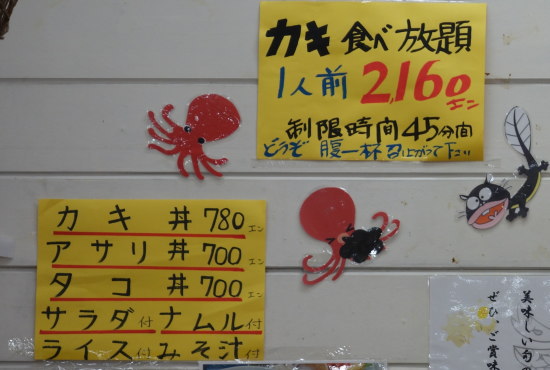 カキ食べ放題
1人前2,160エン
制限時間45分間
どうぞ腹一杯召し上がって下さい
カキ丼780エン
アサリ丼700エン
タコ丼700エン
サラダ付ナムル付
ライス付みそ汁付
美味しい旬の
ぜひ、ご賞味